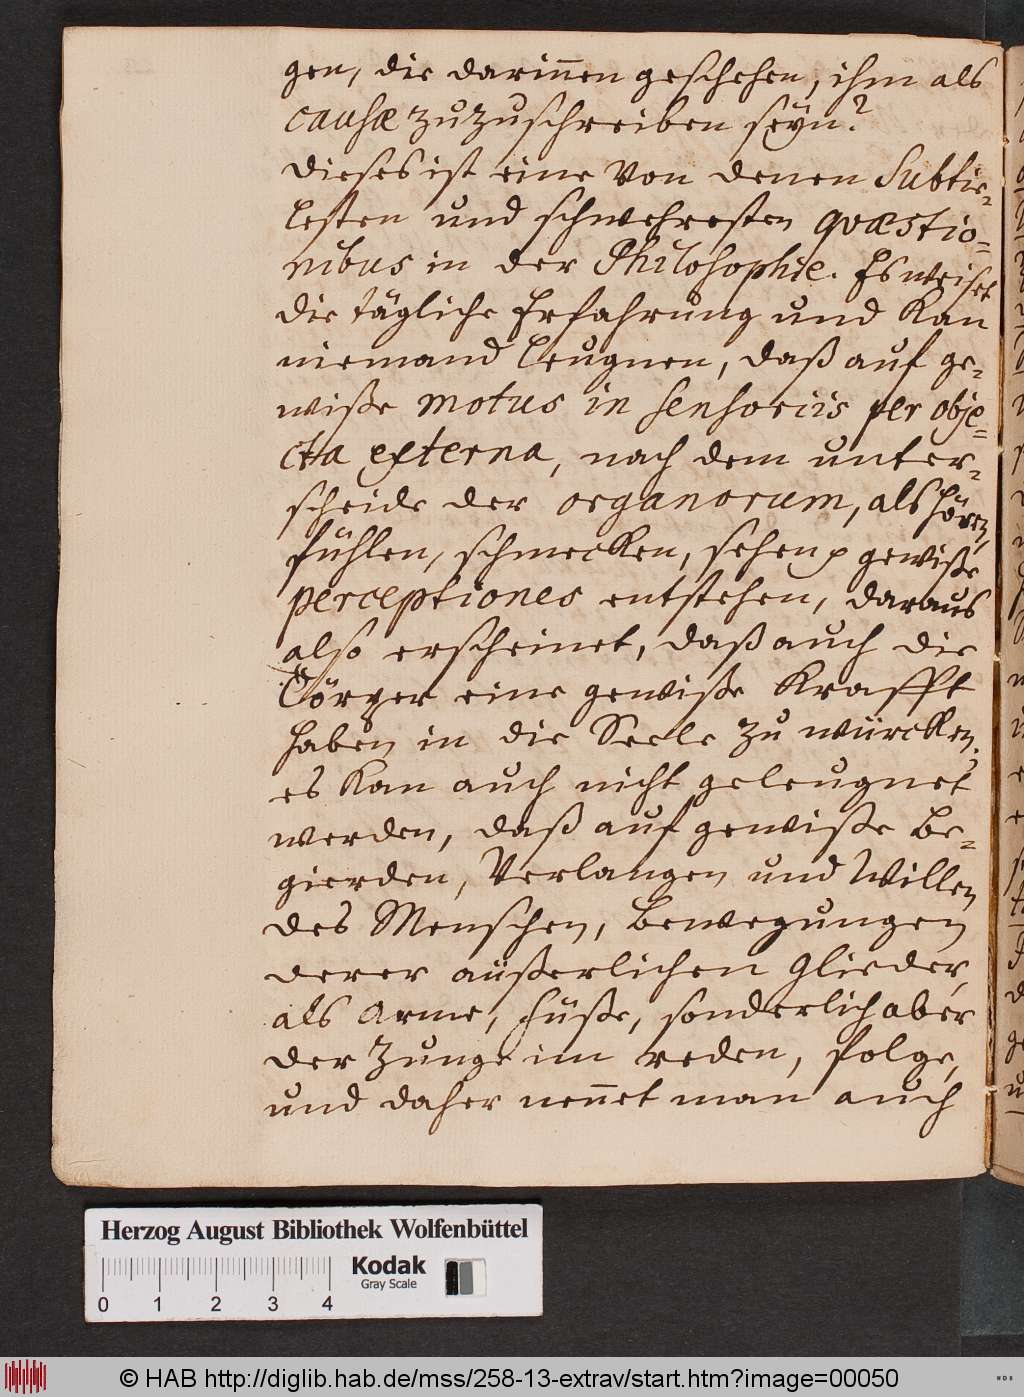 gen, die darinnen geschehen, ihm als
causæ zuzuschreiben seyn?
Dieses ist eine von denen Subtie-
lesten und schwehresten quæstio-
nibus in der Philosophie. Es weiset
die tägliche Erfahrung und kan
niemand leugnen, daß auf ge-
wiße motus in sensoriis per obje-
cta externa, nach dem unter-
scheide der organorum, als hören,
fühlen, schmecken, sehen p gewiße
perceptiones entstehen, daraus
also erscheinet, daß auch die
Cörper eine gewiße Krafft
haben in die Seele zu würcken.
es kan auch nicht geleugnet
werden, daß auf gewiße Be-
gierden, Verlangen und Willen
des Menschen, Bewegungen
derer äußerlichen Glieder,
als Arme, Füße, sonderlich aber
der Zunge im reden, folge,
und daher nennet man auch
Herzog August Bibliothek Wolfenbüttel
Kodak
Gray Scale
0 1 2 3 4
© HAB http://diglib.hab.de/mss/258-13-extrav/start.htm?image=00050